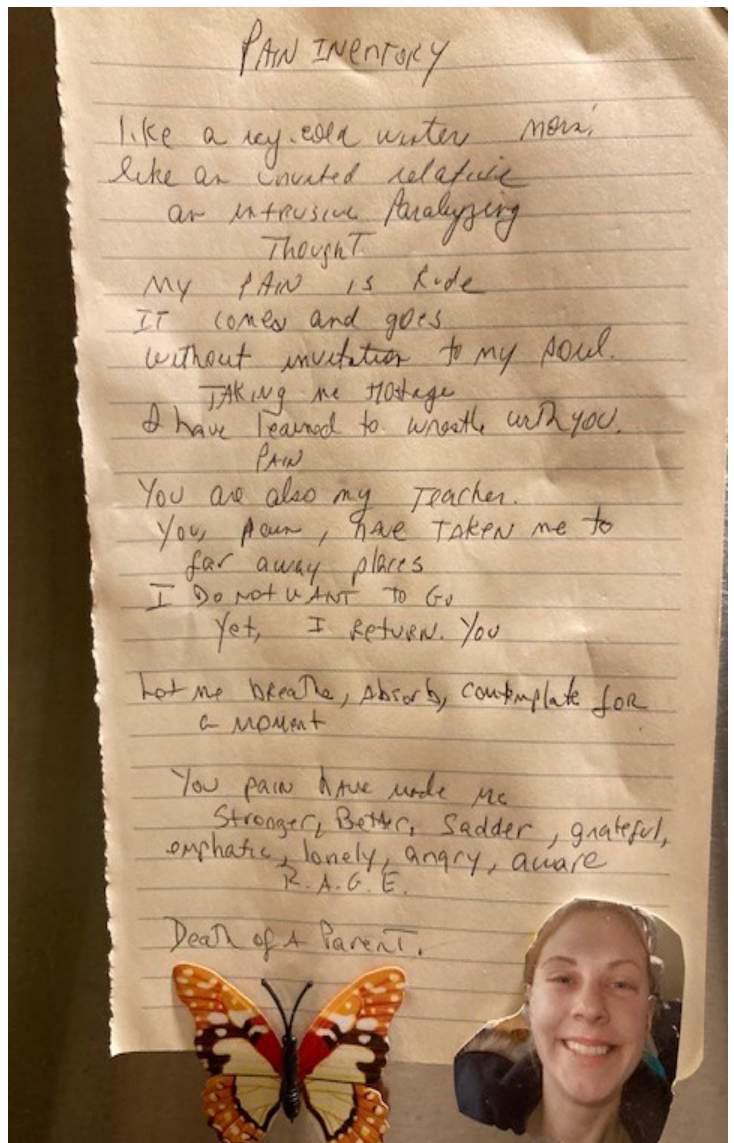 PAIN INENTORY
like a icy cold winter morn,
like an invited relative
an intrusive Paralyzing
Thought.
MY PAIN is Rude
IT comes and goes
without invitation to my soul.
TAKING me Hostage
I have learned to wrestle with you.
PAIN
You are also my Teacher.
You, pain, have TAKEN me to
far away places
I DO NOT WANT TO Go
Yet, I RETURN. You
Let me breathe, Absorb, contemplate for
a moment
You pain have made me
Stronger, Better, Sadder, grateful,
emphatic, lonely, angry, aware
R.A.G.E.
Death of A Parent.